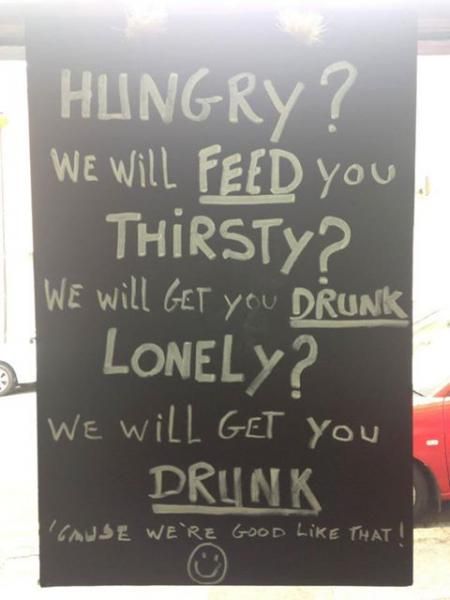 HUNGRY?
WE WiLL FEED YOU
THiRSTY?
WE Will GET you DRUNK
LONELY?
WE WiLL GET YOU
DRUNK
'CAUSE WE'RE GOOD LiKE THAT!